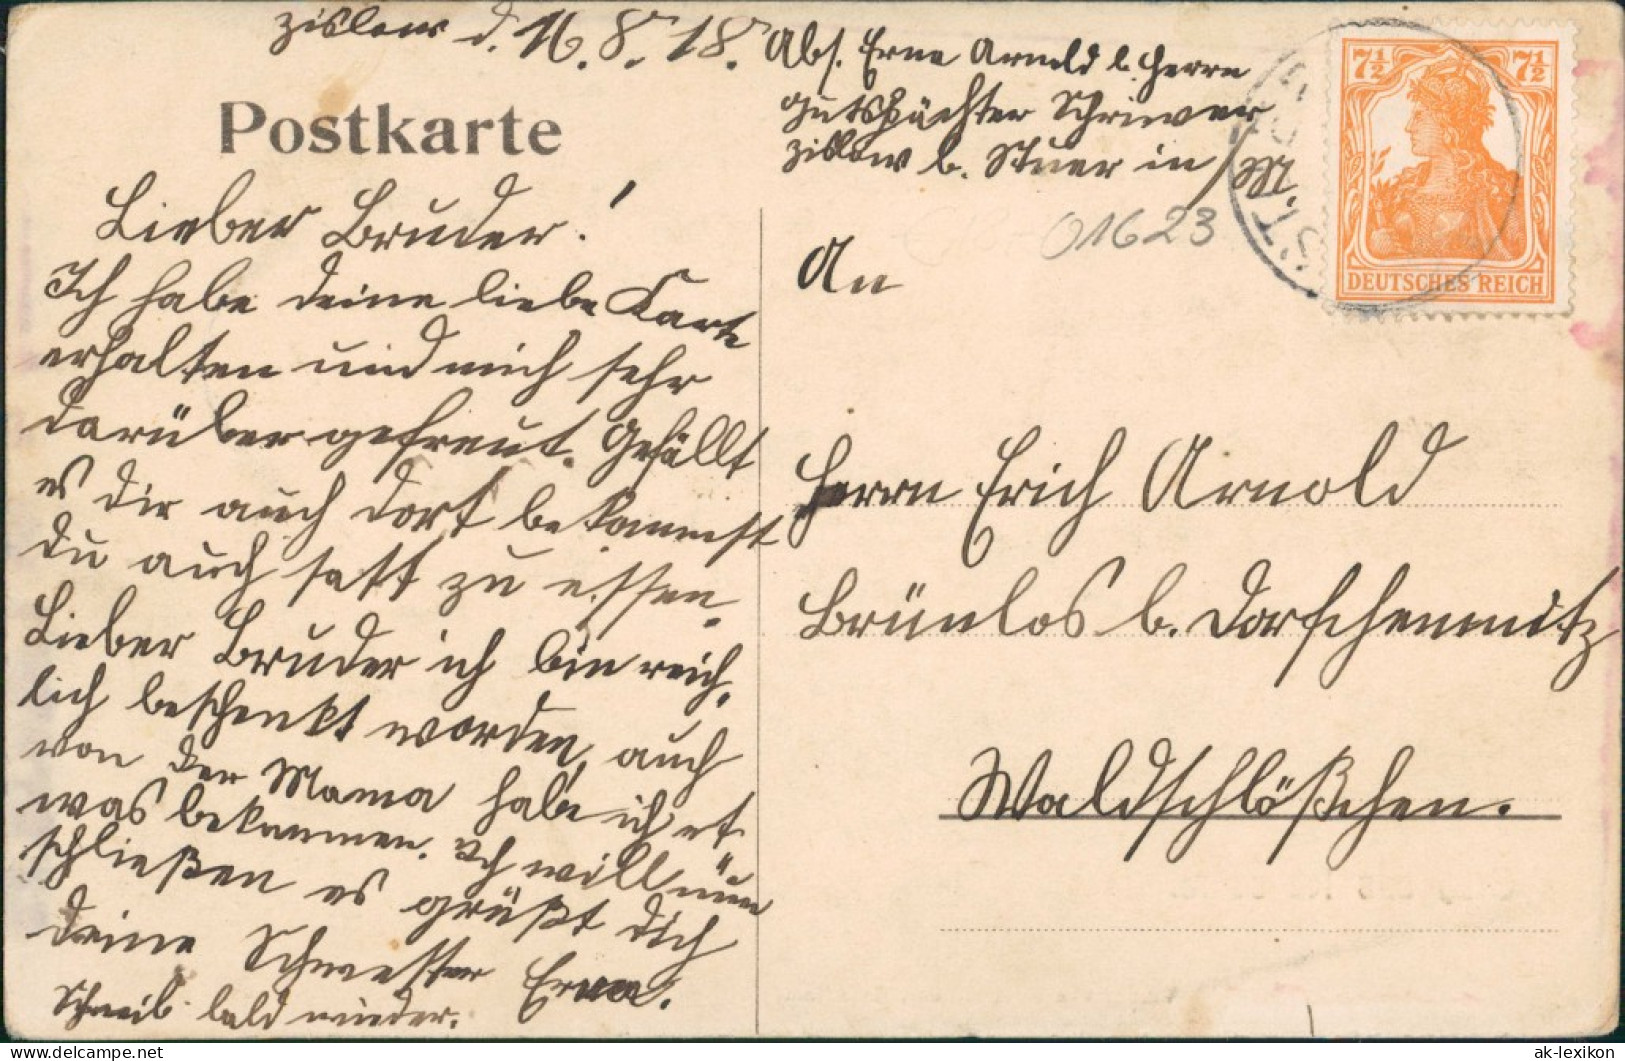 Zislow d. 16.8.18.
Abs. Erna Arnold b. Herrn
Gutspächter Schriewer
Zislow b. Stuer in M.
Postkarte
7½ 7½
DEUTSCHES REICH
01623
Lieber Bruder!
Ich habe deine liebe Karte
erhalten und mich sehr
darüber gefreut. Gefällt
es dir auch dort bekommst
du auch satt zu essen.
Lieber Bruder ich bin reich-
lich beschenkt worden, auch
von der Mama habe ich et-
was bekommen. Ich will nun
schließen es grüßt dich
deine Schwester Erna.
Schreib bald wieder.
An
Herrn Erich Arnold
Brünlos b. Dorfchemnitz
Waldschlößchen.
www.delcampe.net
ak-lexikon